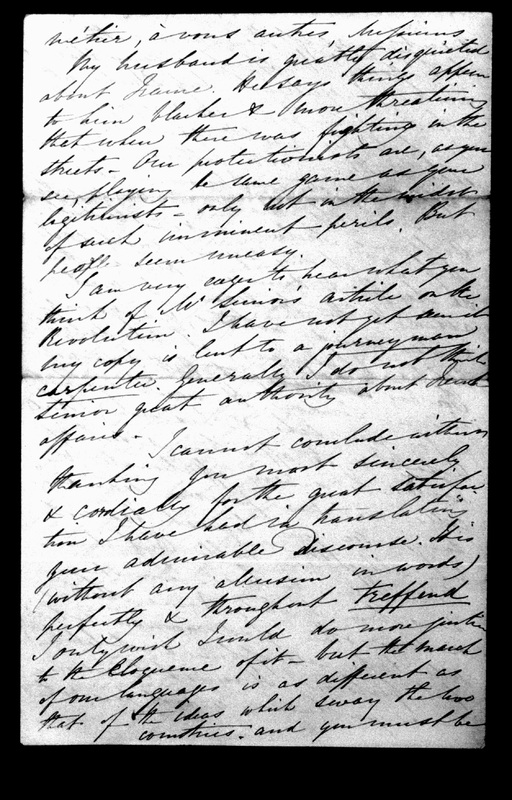 métier, à vous autres, Messieurs
My husband is greatly disquieted
about France. He says things appear
to him blacker & more threatening
that when there was fighting in the
streets – Our protectionists are, as you
see, playing the same game as your
legitimists – only not in the midst
of such imminent perils. But
people seem uneasy.
I am very eager to hear what you
think of Mr Senior's article on the
Revolution. I have not yet seen it
my copy is lent to a journeyman
carpenter. Generally I do not think
Senior great authority about French
affairs –
I cannot conclude without
thanking you most sincerely
& cordially for the great satisfac
tion I have had in translating
your admirable Discourse. It is
(without any allusion in words)
perfectly & throughout treffend
I only wish I could do more justice
to the eloquence of it – but the march
of our languages is as different as
that of the ideas which sway the two
countries – and you must be